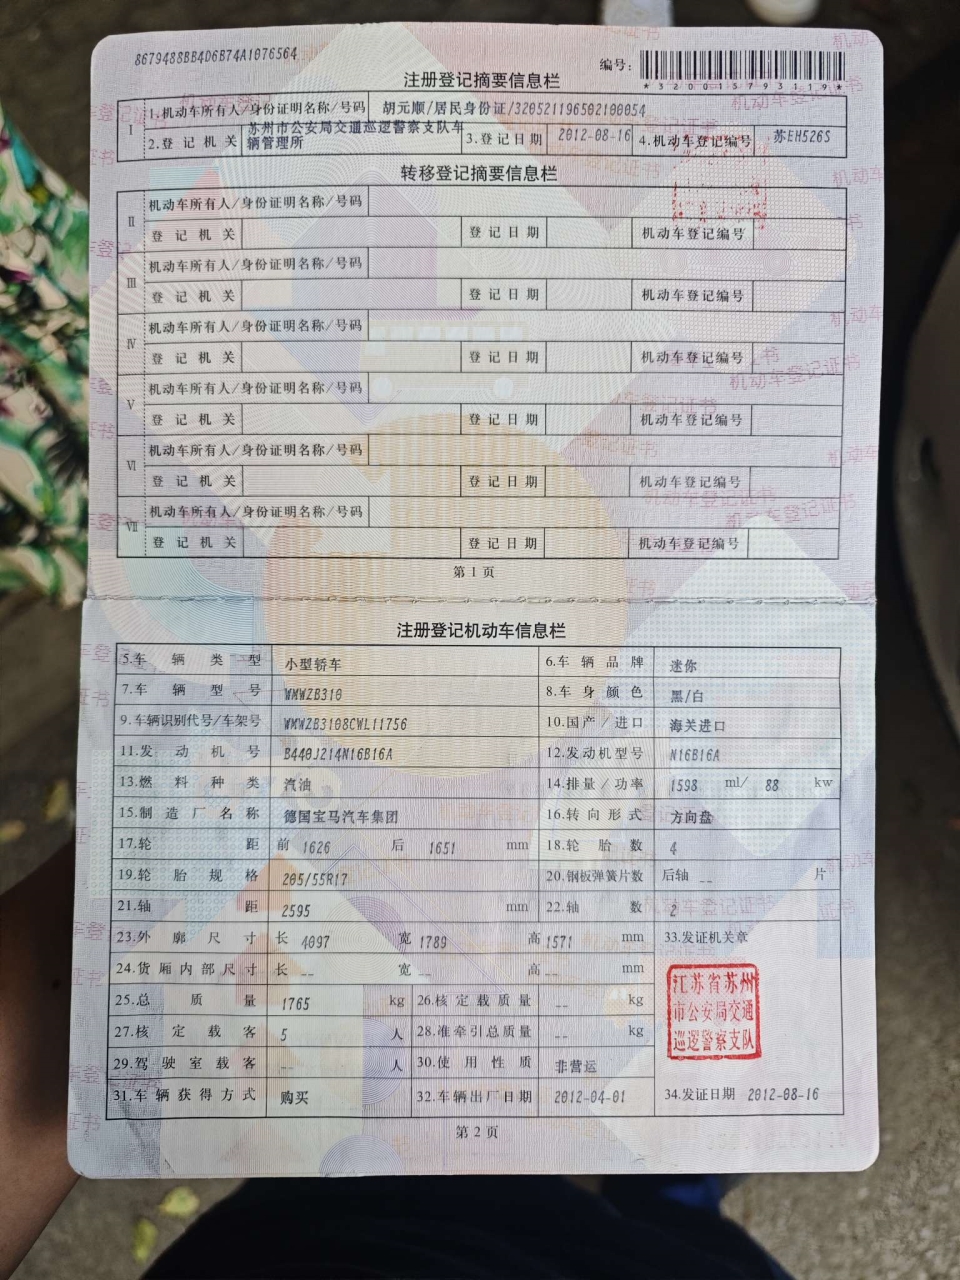 8679488BB4D6B74A1076564
编号:
*320015793119*
注册登记摘要信息栏
I
1.机动车所有人/身份证明名称/号码 胡元顺/居民身份证/320521196502100054
2.登记机关 苏州市公安局交通巡逻警察支队车辆管理所 3.登记日期 2012-08-16 4.机动车登记编号 苏EH526S
转移登记摘要信息栏
II
机动车所有人/身份证明名称/号码
登记机关 登记日期 机动车登记编号
III
机动车所有人/身份证明名称/号码
登记机关 登记日期 机动车登记编号
IV
机动车所有人/身份证明名称/号码
登记机关 登记日期 机动车登记编号
V
机动车所有人/身份证明名称/号码
登记机关 登记日期 机动车登记编号
VI
机动车所有人/身份证明名称/号码
登记机关 登记日期 机动车登记编号
VII
机动车所有人/身份证明名称/号码
登记机关 登记日期 机动车登记编号
第1页
注册登记机动车信息栏
5.车辆类型 小型轿车 6.车辆品牌 迷你
7.车辆型号 WMWZB310 8.车身颜色 黑/白
9.车辆识别代号/车架号 WMWZB3108CWL11756 10.国产/进口 海关进口
11.发动机号 B440J214N16B16A 12.发动机型号 N16B16A
13.燃料种类 汽油 14.排量/功率 1598 ml/ 88 kw
15.制造厂名称 德国宝马汽车集团 16.转向形式 方向盘
17.轮距 前 1626 后 1651 mm 18.轮胎数 4
19.轮胎规格 205/55R17 20.钢板弹簧片数 后轴 -- 片
21.轴距 2595 mm 22.轴数 2
23.外廓尺寸 长 4097 宽 1789 高 1571 mm 33.发证机关章
24.货厢内部尺寸 长 -- 宽 -- 高 -- mm
25.总质量 1765 kg 26.核定载质量 -- kg
27.核定载客 5 人 28.准牵引总质量 -- kg
29.驾驶室载客 -- 人 30.使用性质 非营运
江苏省苏州
市公安局交通
巡逻警察支队
31.车辆获得方式 购买 32.车辆出厂日期 2012-04-01 34.发证日期 2012-08-16
第2页